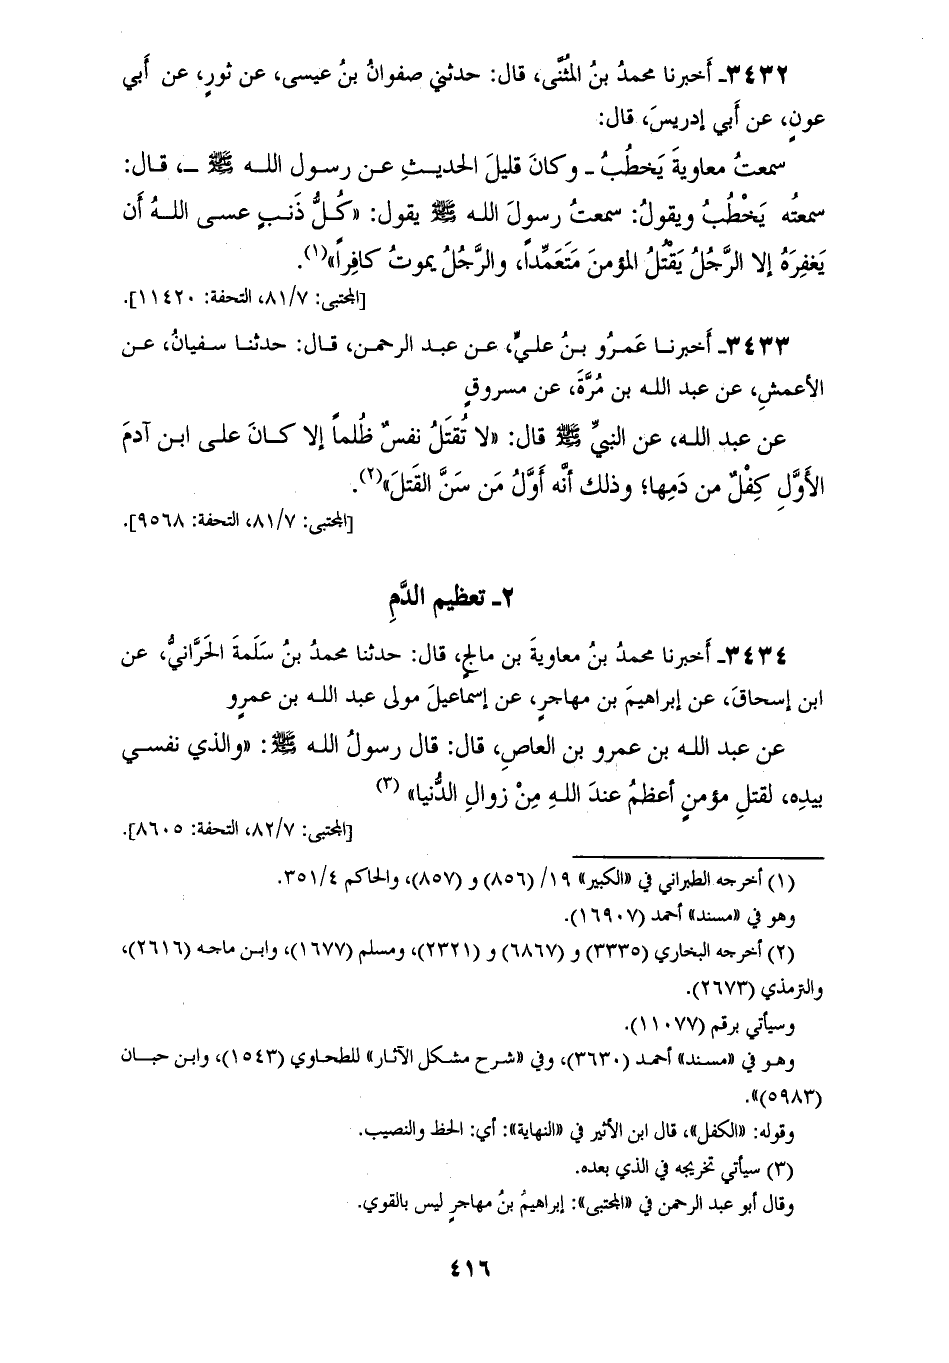 ٣٤٣٢ـ أَخبرنا محمدُ بنُ المُثنَّى، قال: حدثني صفوانُ بنُ عيسى، عن ثورٍ، عن أَبي
عونٍ، عن أَبي إدريسَ، قال:
سمعتُ معاويةَ يَخطُبُ ـ وكانَ قليلَ الحديثِ عن رسول الله ﷺ ـ، قال:
سمعتُه يَخْطُبُ ويقولُ: سمعتُ رسولَ الله ﷺ يقول: «كُلُّ ذَنبٍ عسى اللهُ أَن
يَغفِرَهُ إلا الرَّجُلُ يَقْتُلُ المؤمنَ مَتَعَمِّداً، والرَّجُلُ يموتُ كافِراً»(١).
[المجتبى: ٨١/٧، التحفة: ١١٤٢٠].
٣٤٣٣ـ أَخبرنا عَمرُو بنُ عليٍّ، عن عبد الرحمن، قال: حدثنا سفيانُ، عن
الأعمشِ، عن عبد الله بن مُرَّةَ، عن مسروقٍ
عن عبد الله، عن النبيِّ ﷺ قال: «لا تُقتَلُ نفسٌ ظُلماً إلا كانَ على ابن آدمَ
الأَوَّلِ كِفْلٌ من دَمِها؛ وذلك أنَّه أَوَّلُ مَن سَنَّ القَتلَ»(٢).
[المجتبى: ٨١/٧، التحفة: ٩٥٦٨].
٢ـ تعظيم الدَّمِ
٣٤٣٤ـ أَخبرنا محمدُ بنُ معاويةَ بن مالجٍ، قال: حدثنا محمدُ بنُ سَلَمةَ الحَرَّانيُّ، عن
ابن إسحاقَ، عن إبراهيمَ بن مهاجرٍ، عن إسماعيلَ مولى عبد الله بن عمرٍو
عن عبد الله بن عمرو بن العاصِ، قال: قال رسولُ الله ﷺ: «والذي نفسي
بيدِه، لقتلِ مؤمنٍ أعظمُ عندَ اللهِ مِنْ زوالِ الدُّنيا» (٣)
[المجتبى: ٨٢/٧، التحفة: ٨٦٠٥].
(١) أخرجه الطبراني في «الكبير» ١٩/ (٨٥٦) و (٨٥٧)، والحاكم ٣٥١/٤.
وهو في «مسند» أحمد (١٦٩٠٧).
(٢) أخرجه البخاري (٣٣٣٥) و (٦٨٦٧) و (٢٣٢١)، ومسلم (١٦٧٧)، وابن ماجه (٢٦١٦)،
والترمذي (٢٦٧٣).
وسيأتي برقم (١١٠٧٧).
وهو في «مسند» أحمد (٣٦٣٠)، وفي «شرح مشكل الآثار» للطحاوي (١٥٤٣)، وابن حبان
(٥٩٨٣)».
وقوله: «الكفل»، قال ابن الأثير في «النهاية»: أي: الحظ والنصيب.
(٣) سيأتي تخريجه في الذي بعده.
وقال أبو عبد الرحمن في «المجتبى»: إبراهيمُ بنُ مهاجرٍ ليس بالقوي.
٤١٦